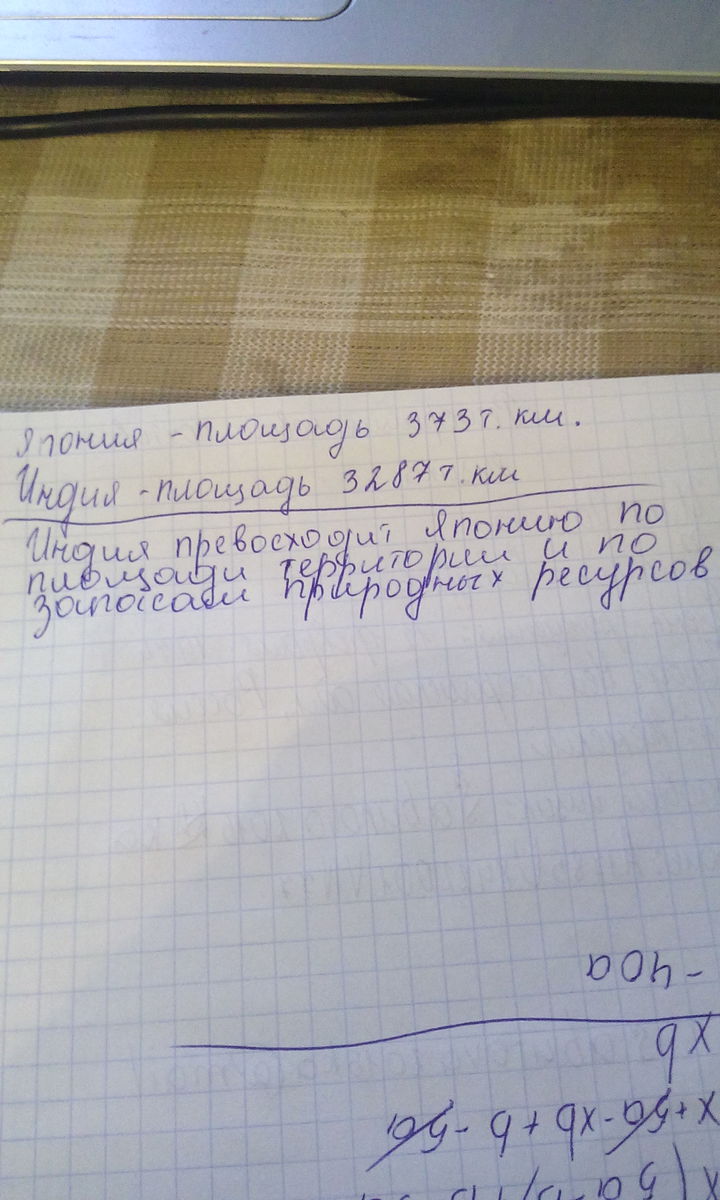 Япония - площадь 373 т. км.
Индия - площадь 3287 т. км
Индия превосходит Японию по
площади территории и по
запасам природных ресурсов
-40a
xb
x+5a-xb+b-5a